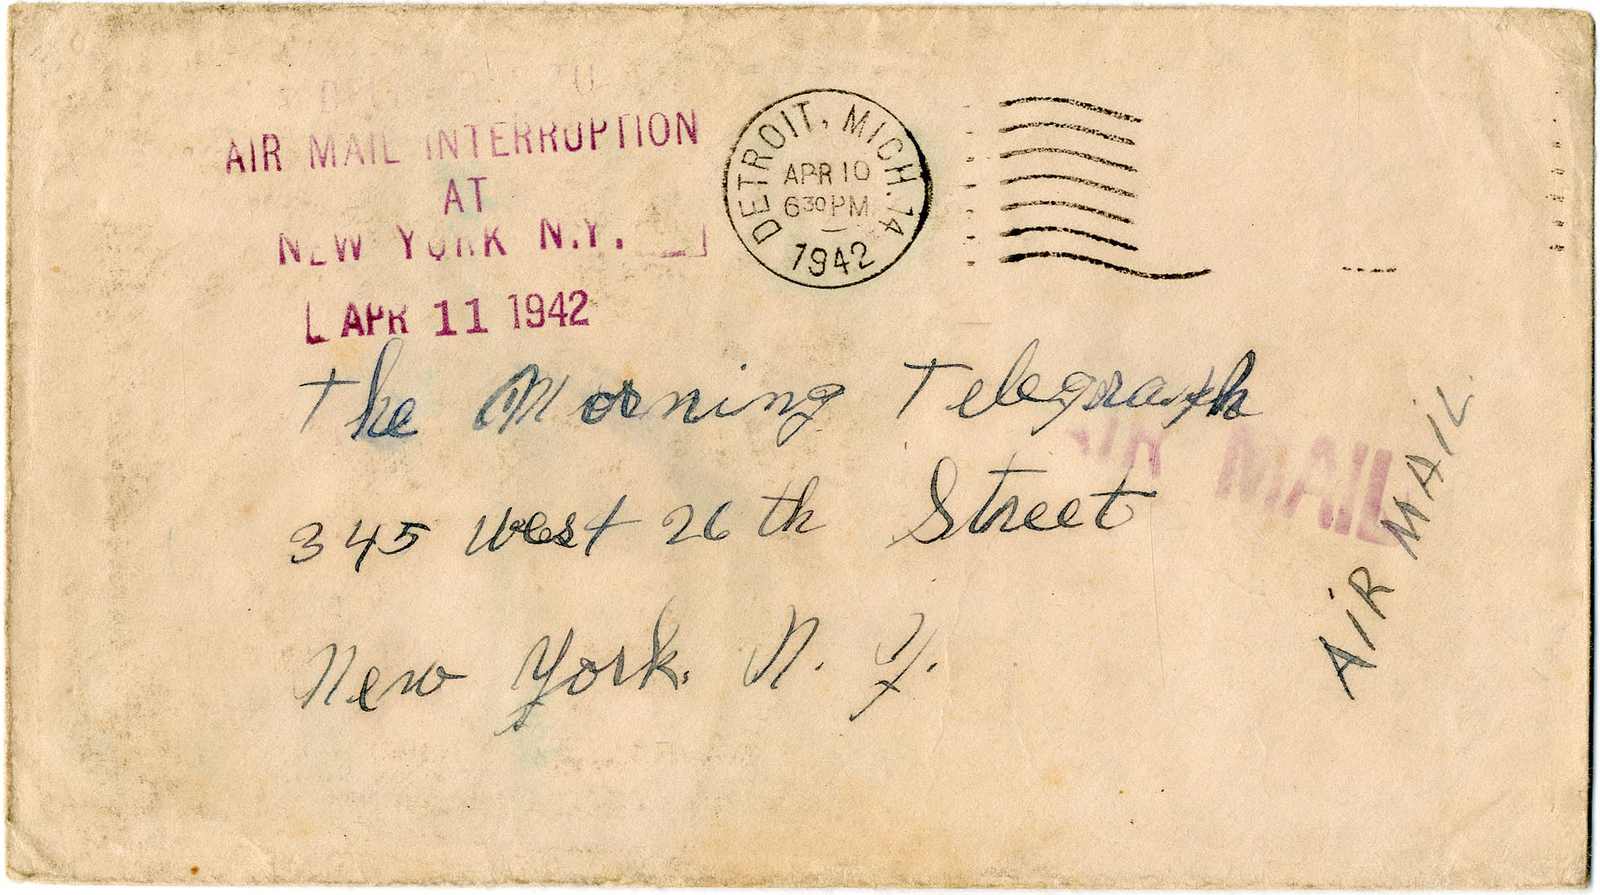 TO
AIR MAIL INTERRUPTION
AT
NEW YORK N.Y.
APR 11 1942
DETROIT, MICH. 14
APR 10
6 30 PM
1942
The Morning Telegraph
345 West 26th Street
New York. N. Y.
AIR MAIL
AIR MAIL